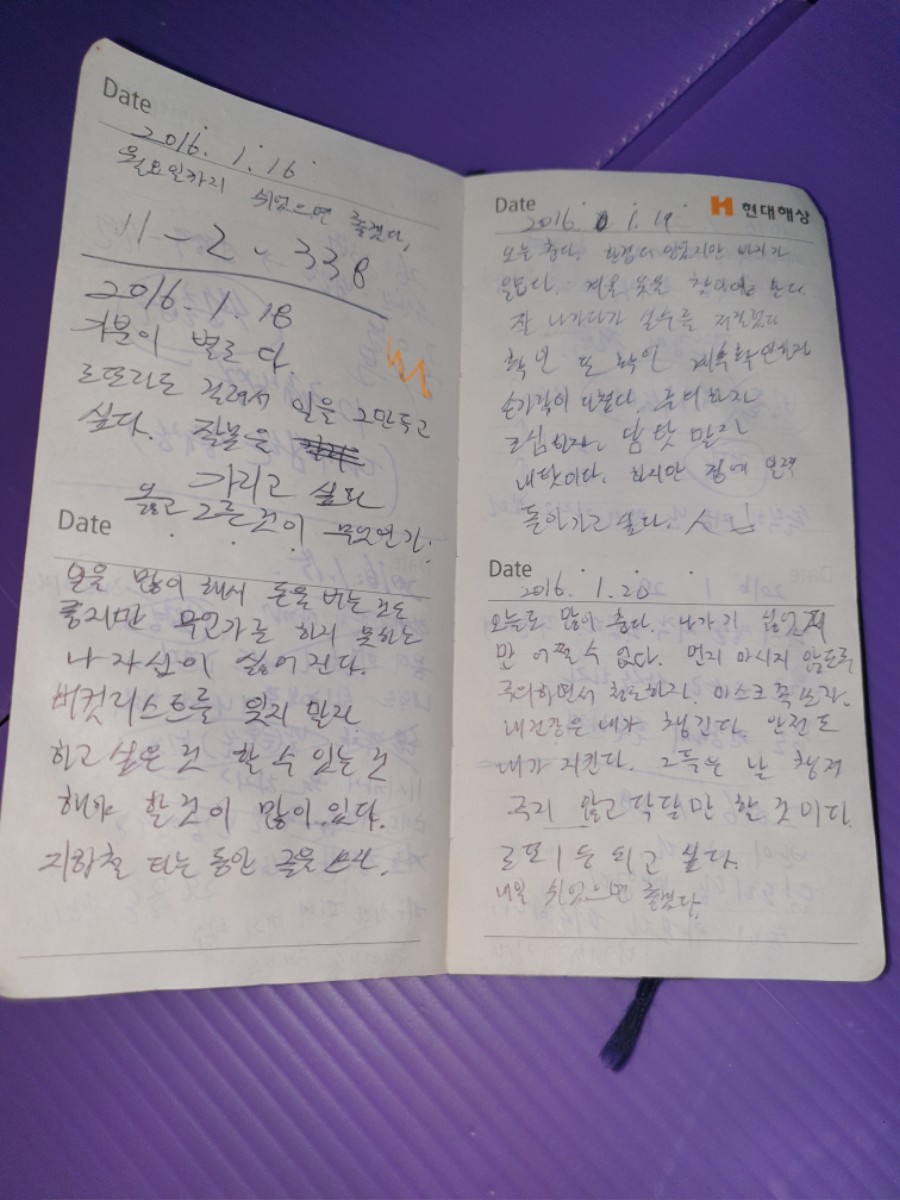 Date
2016. 1. 16
월요일까지 쉬었으면 좋겠다.
11-2-338
2016. 1. 18
기분이 별로다.
로또라도 걸려서 일을 그만두고
싶다. 잘못을
가리고 싶다
옳고 그른것이 무엇인가.
Date
일을 많이 해서 돈을 버는 것도
좋지만 무언가를 하지 못하는
나 자신이 싫어진다.
버킷리스트를 잊지 말자
하고 싶은 것 할 수 있는 것
해야 할것이 많이 있다.
지하철 타는 동안 글을 쓰자.
Date
현대해상
2016. 1. 19
오늘 춥다. 바지가
얇다. 겨울 옷을 한다
잘 나가다가 실수를 저질렀다
확인 또 확인 계속 확인하자
손가락이 다쳤다. 주의하자
조심하자. 남 탓 말자
내탓이다. 하지만 집에 일찍
돌아가고 싶다.
Date
2016. 1. 20
오늘도 많이 춥다. 나가기 싫지
만 어쩔 수 없다. 먼지 마시지 않도록
주의하면서 청소하자. 마스크 꼭 쓰자.
내건강은 내가 챙긴다. 안전도
내가 지킨다. 그들은 날 챙겨
주지 않고 닥달만 할 것이다.
로또 1등 되고 싶다.
내일 쉬었으면 좋겠다.